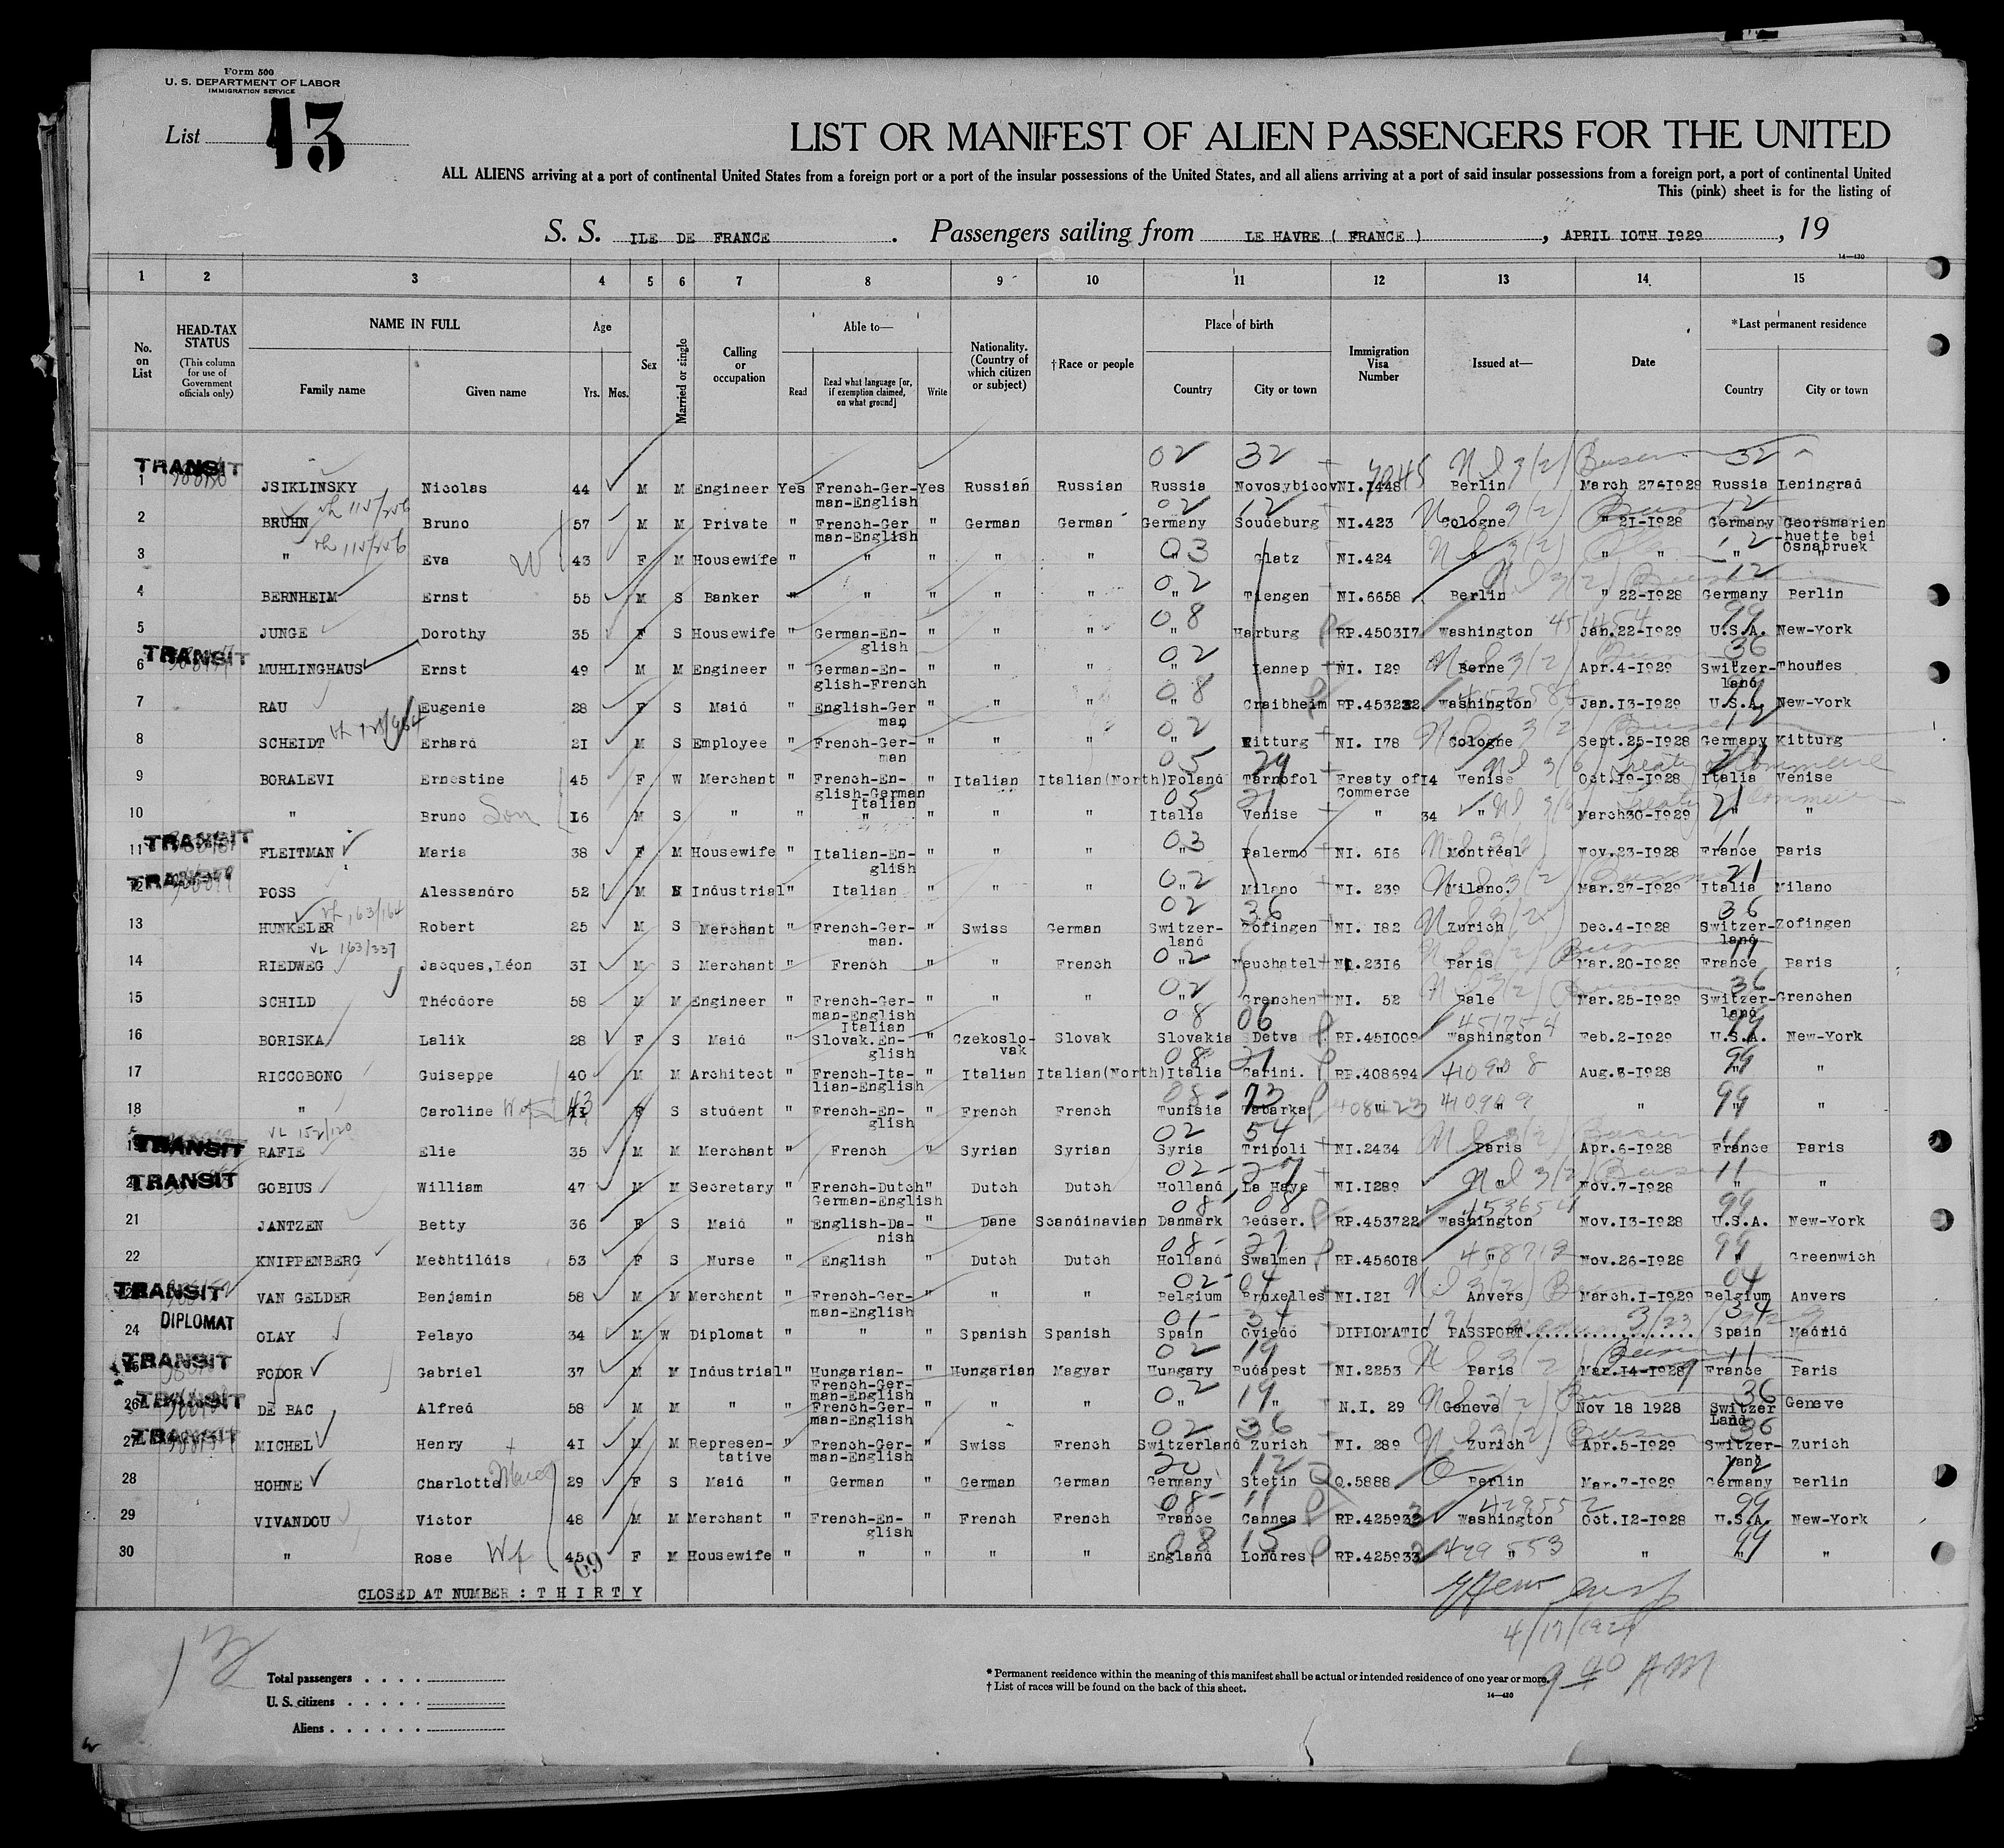 Form 500
U. S. DEPARTMENT OF LABOR
IMMIGRATION SERVICE
List 13
LIST OR MANIFEST OF ALIEN PASSENGERS FOR THE UNITED
ALL ALIENS arriving at a port of continental United States from a foreign port or a port of the insular possessions of the United States, and all aliens arriving at a port of said insular possessions from a foreign port, a port of continental United
This (pink) sheet is for the listing of
S. S. ILE DE FRANCE. Passengers sailing from LE HAVRE ( FRANCE ), APRIL IOTH I929, 19
14—420
1 2 3 4 5 6 7 8 9 10 11 12 13 14 15
No. on List
HEAD-TAX STATUS
(This column for use of Government officials only)
NAME IN FULL
Family name
Given name
Age
Yrs. Mos.
Sex
Married or single
Calling or occupation
Able to—
Read
Read what language [or, if exemption claimed, on what ground]
Write
Nationality. (Country of which citizen or subject)
†Race or people
Place of birth
Country
City or town
Immigration Visa Number
Issued at—
Date
*Last permanent residence
Country
City or town
02 32 32
TRANSIT
1 JSIKLINSKY Nicolas 44 M M Engineer Yes French-German-English Yes Russian Russian Russia Novosybicov NI.I448 Berlin March 27-I928 Russia Leningrad
02 12 12
2 BRUHN Bruno 57 M M Private " French-German-English " German German Germany Soudeburg NI.423 Cologne " 2I-I928 Germany Georsmarien-huette bei Osnabruek
03 12
3 " Eva W 43 F M Housewife " " " " " " Glatz NI.424 " " " " "
02 12
4 BERNHEIM Ernst 55 M S Banker " " " " " " Tiengen NI.6658 Berlin " 22-I928 Germany Berlin
08 99
5 JUNGE Dorothy 35 F S Housewife " German-English " " " " Harburg RP.4503I7 Washington Jan.22-I929 U.S.A. New-York
02 36
TRANSIT
6 MUHLINGHAUS Ernst 49 M M Engineer " German-English-French " " " " Lennep NI. I29 Berne Apr.4-I929 Switzerland
08 99
7 RAU Eugenie 28 F S Maid " English-German " " " " Craibheim RP.453222 Washington Jan.I3-I929 U.S.A. New-York
02 12
8 SCHEIDT Erhard 2I M S Employee " French-German " " " " Kitturg NI. I78 Cologne Sept.25-I928 Germany Kitturg
05 29 21
9 BORALEVI Ernestine 45 F W Merchant " French-English-German Italian " Italian Italian(North) Poland Tarnofol Treaty of Commerce I4 Venise Oct.I9-I928 Italia Venise
05 21 21
10 " Bruno Son I6 M S " " " " " " Italia Venise " 34 " March30-I929 " "
03 11
TRANSIT
11 FLEITMAN Maria 38 F M Housewife " Italian-English " " " " Palermo NI. 6I6 Montréal Nov.23-I928 France Paris
02 21
TRANSIT
12 POSS Alessandro 52 M M Industrial " Italian " " " " Milano NI. 239 Milano. Mar.27-I929 Italia Milano
02 36 36
13 HUNKELER Robert 25 M S Merchant " French-German. " Swiss German Switzerland Zofingen NI. I82 Zurich Dec.4-I928 Switzerland Zofingen
VL 163/337
02 11
14 RIEDWEG Jacques,Léon 3I M S Merchant " French " " French " Neuchatel NI.23I6 Paris Mar.20-I929 France Paris
02 36
15 SCHILD Théodore 58 M M Engineer " French-German-English Italian " " " " Grenchen NI. 52 Bale Mar.25-I929 Switzerland Grenchen
08 06 451754 99
16 BORISKA Lalik 28 F S Maid " Slovak.English " Czekoslovak Slovak Slovakia Detva RP.45I009 Washington Feb.2-I929 U.S.A. New-York
08 21 99
17 RICCOBONO Guiseppe 40 M M Architect " French-Italian-English " Italian Italian(North) Italia Carini. RP.408694 410908 " Aug.8-I928 " "
08 73 99
18 " Caroline 43 F S student " French-English " French French Tunisia Tabarka 408423 410909 " " " "
VL 152/120
02 54 11
TRANSIT
RAFIE Elie 35 M M Merchant " French " Syrian Syrian Syria Tripoli NI.2434 Paris Apr.6-I928 France Paris
02 27 11
TRANSIT
GOBIUS William 47 M M Secretary " French-Dutch German-English " Dutch Dutch Holland La Haye NI.I289 " Nov.7-I928 " "
08 08 453654 99
21 JANTZEN Betty 36 F S Maid " English-Danish " Dane Scandinavian Danmark Gedser. RP.453722 Washington Nov.I3-I928 U.S.A. New-York
08 27 99
22 KNIPPENBERG Mechtildis 53 F S Nurse " English " Dutch Dutch Holland Swalmen RP.4560I8 458712 " Nov.26-I928 " Greenwich
02 04 04
TRANSIT
VAN GELDER Benjamin 58 M M Merchant " French-German-English " " " Belgium Bruxelles NI.I2I Anvers March.I-I929 Belgium Anvers
01 34 34
DIPLOMAT
24 OLAY Pelayo 34 M W Diplomat " " " Spanish Spanish Spain Oviedo DIPLOMATIC PASSPORT.................... Spain Madrid
02 19 11
TRANSIT
FODOR Gabriel 37 M M Industrial " Hungarian-French-German-English " Hungarian Magyar Hungary Budapest NI.2253 Paris Mar.I4-I929 France Paris
02 19 36
TRANSIT
26 DE BAC Alfred 58 M M " " French-German-English " " " " " N.I. 29 Geneve Nov 18 1928 Switzer Land Geneve
02 36 36
TRANSIT
27 MICHEL Henry 4I M M Representative " French-German-English " Swiss French Switzerland Zurich NI. 289 Zurich Apr.5-I929 Switzerland Zurich
20 12 12
28 HOHNE Charlotte 29 F S Maid " German German German Germany Stetin Q.5888 Berlin Mar.7-I929 Germany Berlin
08 11 429552 99
29 VIVANDOU Victor 48 M M Merchant " French-English " French French France Cannes RP.425932 Washington Oct.I2-I928 U.S.A. New-York
08 15 99
30 " Rose Wf 45 F M Housewife " " " " " England Londres RP.425933 429553 " " " "
69
CLOSED AT NUMBER : T H I R T Y
4/17/1929
9 40 AM
Total passengers
U. S. citizens
Aliens
* Permanent residence within the meaning of this manifest shall be actual or intended residence of one year or more.
† List of races will be found on the back of this sheet.
14—420